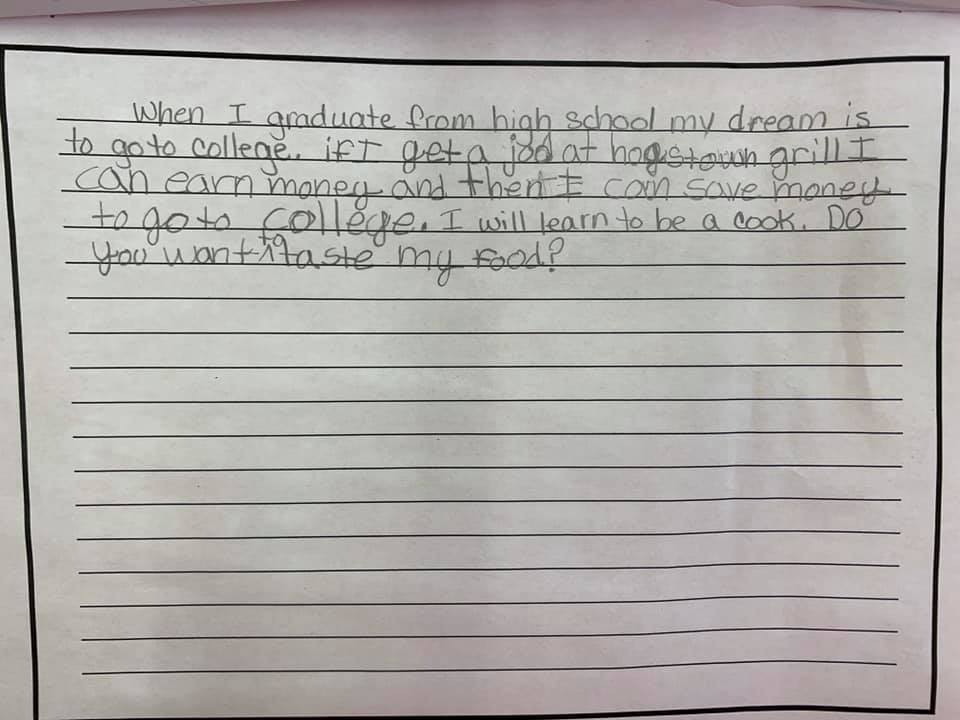 When I graduate from high school my dream is
to go to college. if I get a jod at hogstown grill I
can earn money and then I can save money
to go to college. I will learn to be a cook. Do
you want to taste my food?